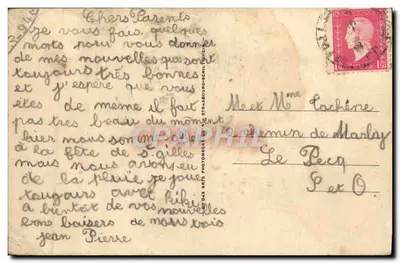 Chers Parents
Je vous fais quelques
mots pour vous donner
de mes nouvelles qui sont
toujours très bonnes
et j'espère que vous
êtes de même il fait
pas très beau du moment
hier nous sommes
à la fête de St gilles
mais nous avons eu
de la pluie je joue
toujours avec kiki
à bientôt de vos nouvelles
bon baisers de nous trois
Jean Pierre
M et Mme
chemin de Marly
Le Pecq
S et O